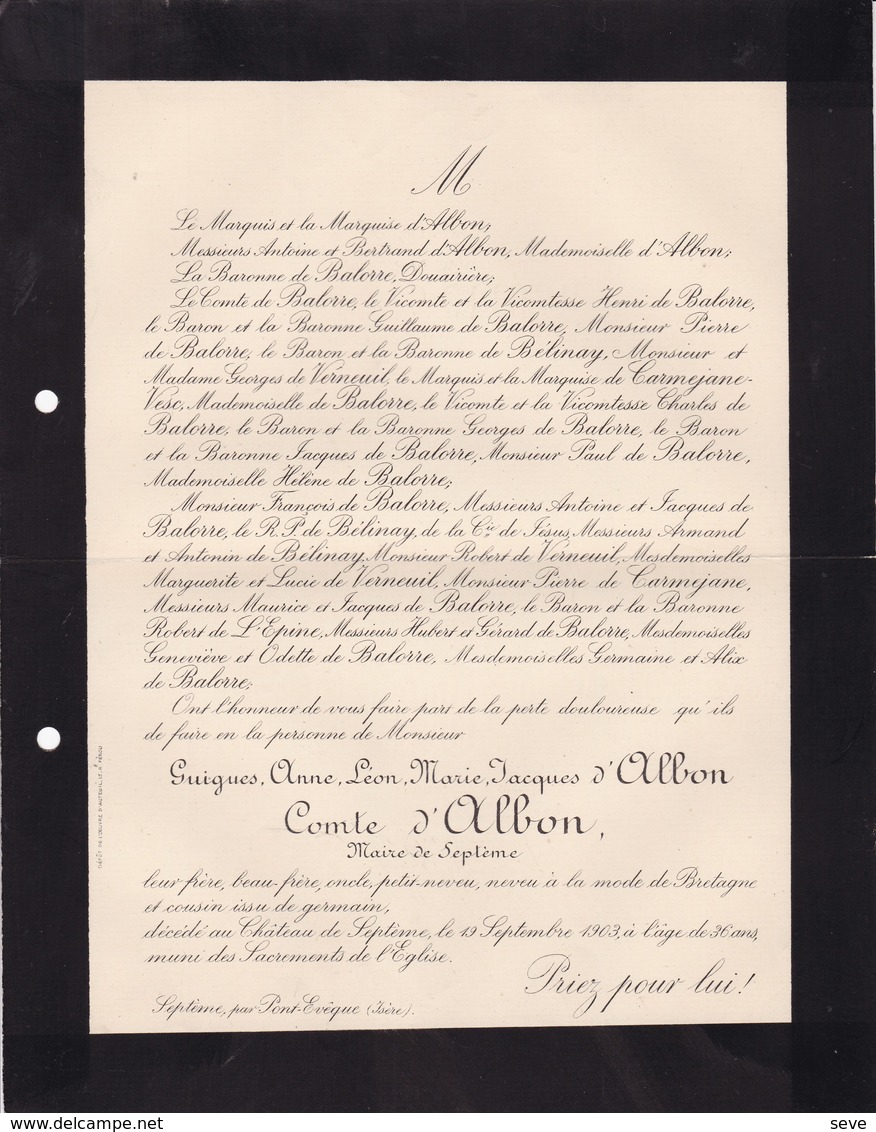 M
Le Marquis et la Marquise d'Albon;
Messieurs Antoine et Bertrand d'Albon, Mademoiselle d'Albon;
La Baronne de Balorre, Douairière;
Le Comte de Balorre, le Vicomte et la Vicomtesse Henri de Balorre,
le Baron et la Baronne Guillaume de Balorre, Monsieur Pierre
de Balorre, le Baron et la Baronne de Bélinay, Monsieur et
Madame Georges de Verneuil, le Marquis et la Marquise de Carmejane-
Vesc, Mademoiselle de Balorre, le Vicomte et la Vicomtesse Charles de
Balorre, le Baron et la Baronne Georges de Balorre, le Baron
et la Baronne Jacques de Balorre, Monsieur Paul de Balorre,
Mademoiselle Hélène de Balorre;
Monsieur François de Balorre, Messieurs Antoine et Jacques de
Balorre, le R. P. de Bélinay, de la Cie de Jésus, Messieurs Armand
et Antonin de Bélinay, Monsieur Robert de Verneuil, Mesdemoiselles
Marguerite et Lucie de Verneuil, Monsieur Pierre de Carmejane,
Messieurs Maurice et Jacques de Balorre, le Baron et la Baronne
Robert de L'Epine, Messieurs Hubert et Gérard de Balorre, Mesdemoiselles
Geneviève et Odette de Balorre, Mesdemoiselles Germaine et Alix
de Balorre;
Ont l'honneur de vous faire part de la perte douloureuse qu'ils
de faire en la personne de Monsieur
Guigues, Anne, Léon, Marie, Jacques d'Albon
Comte d'Albon,
Maire de Septème
leur frère, beau-frère, oncle, petit-neveu, neveu à la mode de Bretagne
et cousin issu de germain,
décédé au Château de Septème, le 19 Septembre 1903, à l'âge de 36 ans,
muni des Sacrements de l'Eglise.
Priez pour lui!
Septème, par Pont-Evêque (Isère).
DÉPÔT DE L'OEUVRE D'AUTEUIL, 17, R. FÉROU
seve